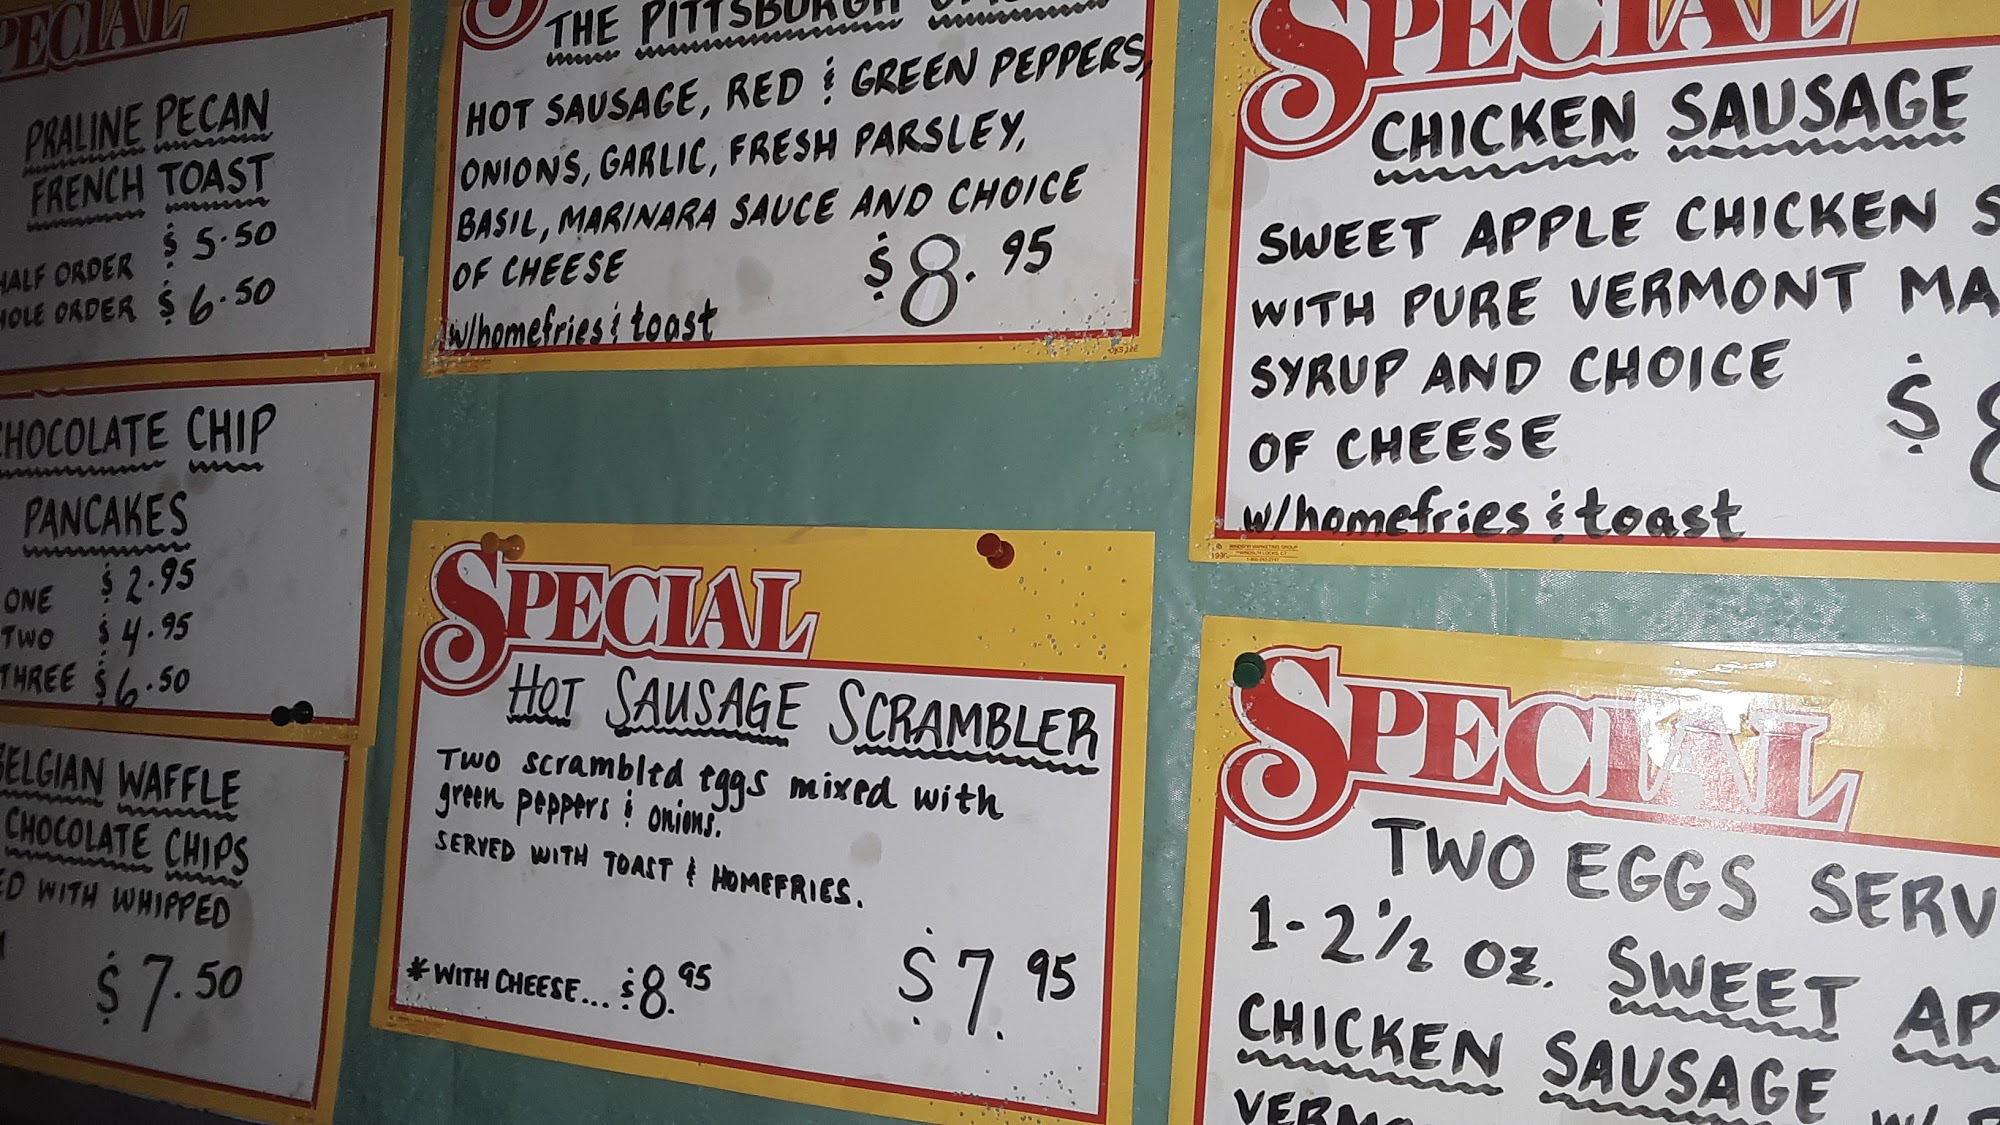 PECIAL
PRALINE PECAN
FRENCH TOAST
HALF ORDER $5.50
HOLE ORDER $6.50
CHOCOLATE CHIP
PANCAKES
ONE $2.95
TWO $4.95
THREE $6.50
BELGIAN WAFFLE
CHOCOLATE CHIPS
ED WITH WHIPPED
$7.50
THE PITTSBURGH
HOT SAUSAGE, RED & GREEN PEPPERS,
ONIONS, GARLIC, FRESH PARSLEY,
BASIL, MARINARA SAUCE AND CHOICE
OF CHEESE
$8.95
w/homefries & toast
SPECIAL
HOT SAUSAGE SCRAMBLER
Two scrambled eggs mixed with
green peppers & onions.
SERVED WITH TOAST & HOMEFRIES.
*WITH CHEESE... $8.95
$7.95
SPECIAL
CHICKEN SAUSAGE
SWEET APPLE CHICKEN S
WITH PURE VERMONT MA
SYRUP AND CHOICE
OF CHEESE
$8
w/homefries & toast
SPECIAL
TWO EGGS SERV
1-2 1/2 OZ. SWEET AP
CHICKEN SAUSAGE W/
VERM